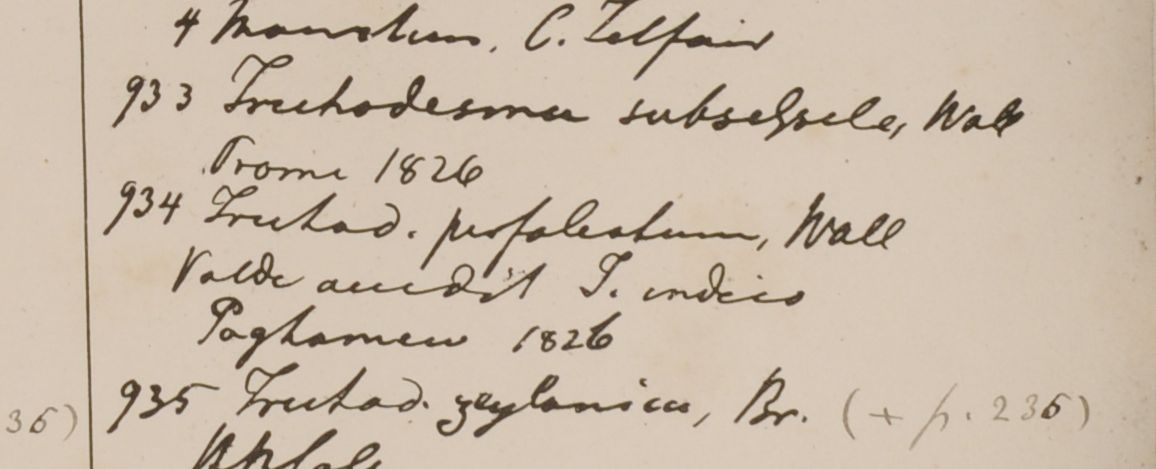 4 Mauritius, C. Telfair
933 Trichodesma subsessile, Wall
Prome 1826
934 Trichod. perfoliatum, Wall
Valde accedit T. indico
Paghamew 1826
36) 935 Trichod. zeylanica, Br. (+ p. 236)